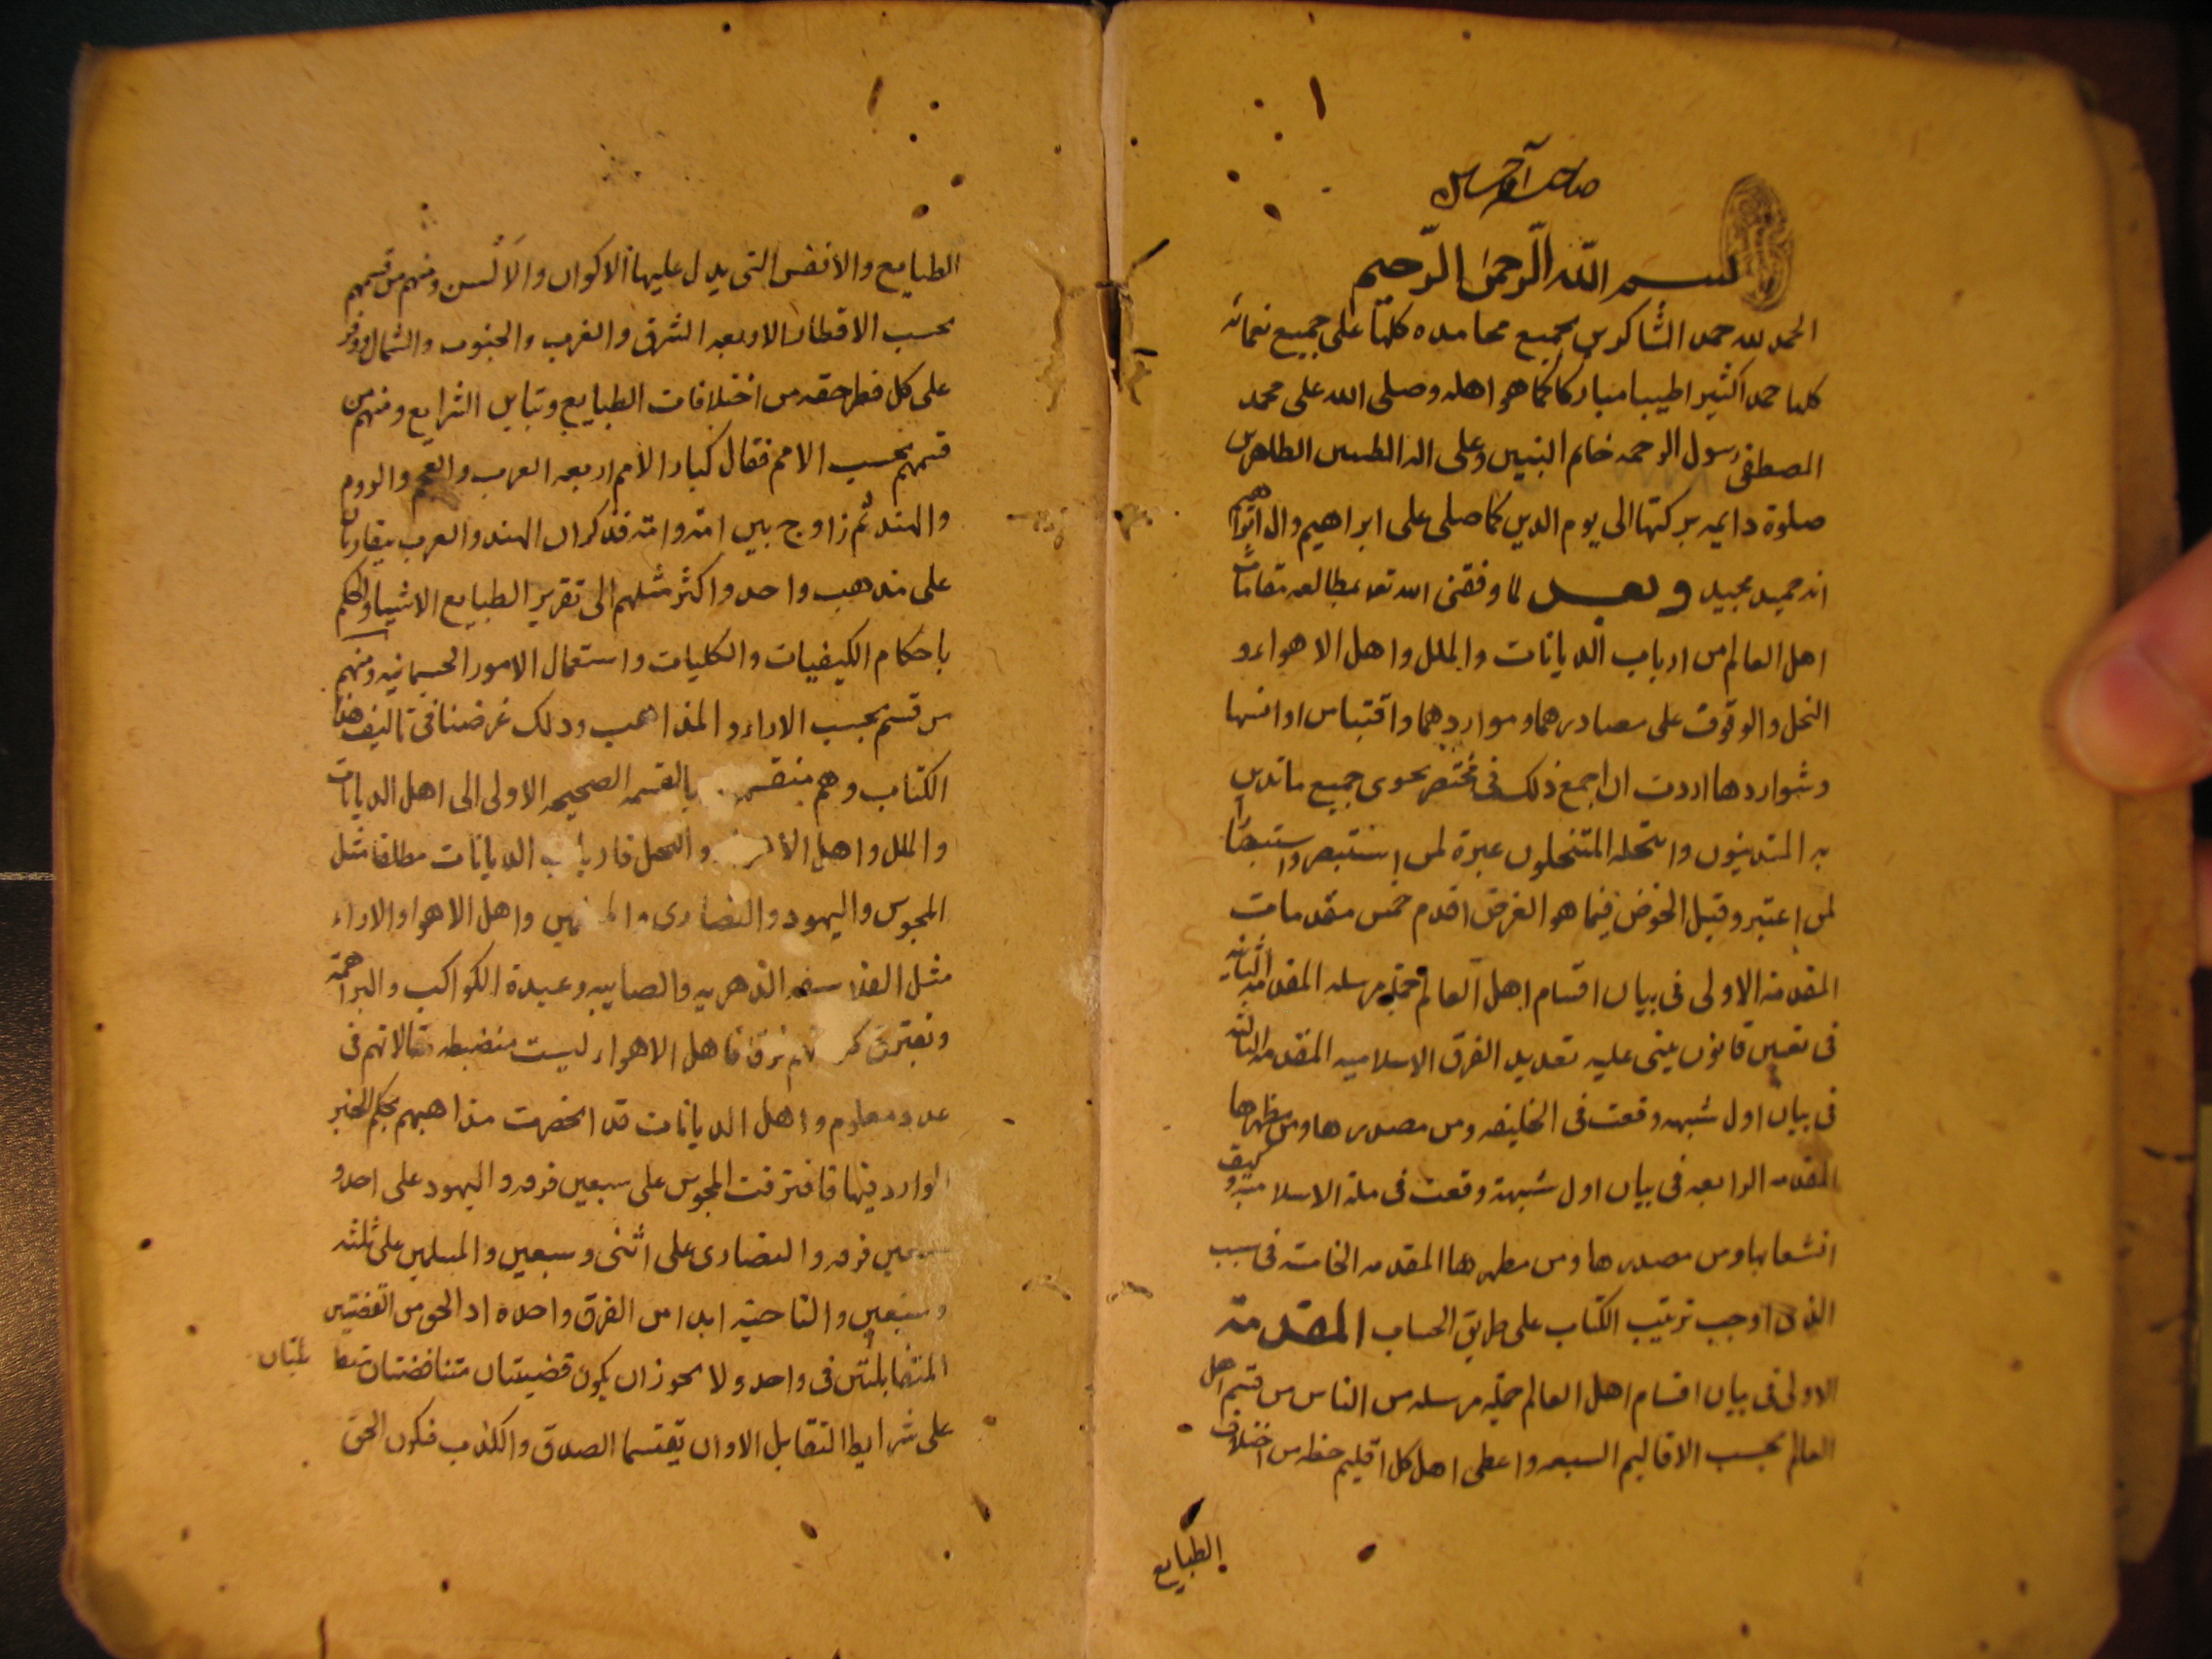 بسم الله الرحمن الرحيم
الحمد لله حمد الشاكرين بجميع محامده كلها على جميع نعمائه
كلها حمدا كثيرا طيبا مباركا كما هو اهله وصلى الله على محمد
المصطفى رسول الرحمه خاتم النبيين وعلى اله الطيبين الطاهرين
صلوة دايمه بركتها الى يوم الدين كما صلى على ابراهيم وال ابراهيم
انه حميد مجيد وبعد لما وفقنى الله تعا بمطالعه مقامات
اهل العالم من ارباب الديانات والملل واهل الاهواء و
النحل والوقوف على مصادرهما ومواردهما واقتباس اوانسها
وشواردها اردت ان اجمع ذلك فى مختصر يحوى جميع ما تدين
به المتدينون وانتحله المنتحلون عبرة لمن استبصر واستبصارا
لمن اعتبر وقبل الخوض فيما هو الغرض اقدم خمس مقدمات
المقدمة الاولى فى بيان اقسام اهل العالم جملة مرسله المقدمه الثانيه
فى تعيين قانون يبنى عليه تعديد الفرق الاسلاميه المقدمه الثالثه
فى بيان اول شبهه وقعت فى الخليفه ومن مصدرها ومن مظهرها
المقدمه الرابعه فى بيان اول شبهة وقعت فى ملة الاسلاميه وكيف
انشعابها ومن مصدرها ومن مظهرها المقدمه الخامسة فى سبب
الذى اوجب ترتيب الكتاب على طريق الحساب المقدمة
الاولى فى بيان اقسام اهل العالم جملة مرسله من الناس من قسم اهل
العالم بحسب الاقاليم السبعه واعطى اهل كل اقليم حظه من اختلاف
الطبايع
الطبايع والأنفس التى يدل عليها الاكوان والألسن ومنهم من قسمهم
بحسب الاقطار الاربعه الشرق والغرب والجنوب والشمال ووفر
على كل قطر حقه من اختلافات الطبايع وتباين الشرايع ومنهم من
قسمهم بحسب الامم فقال كبار الأمم اربعه العرب والعجم والروم
والهند ثم زاوج بين امة وامة فذكر ان الهند والعرب يتقاربان
على مذهب واحد واكثر مثلهم الى تقرير الطبايع الاشيا والحكم
باحكام الكيفيات والكليات واستعمال الامور الجسمانيه ومنهم
من قسم بحسب الاراء والمذاهب وذلك غرضنا فى تاليف هذا
الكتاب وهم بالقسمه الصحيحه الاولى الى اهل الديانات
والملل واهل والنحل فارباب الديانات مطلقا مثل
المجوس واليهود والنصارى واهل الاهوا والاراء
مثل الدهريه والصابيه وعبدة الكواكب والبراهمة
ويفترق فرقا فاهل الاهواء ليست منضبطه مقالاتهم فى
عدد معلوم واهل الديانات قد انحصرت مذاهبهم بحكم الخبر
الوارد فيها فافترقت المجوس على سبعين فرقه واليهود على احد و
سبعين فرقه والنصارى على اثنى وسبعين والمسلمين على ثلثه
وسبعين والناجيه ابدا من الفرق واحده اذ الحق من القضيتين
المتقابلتين فى واحد ولا يجوز ان يكون قضيتان متناقضتان متقابلتان
على شرايط التقابل الا وان يقتسما الصدق والكذب فيكون الحق